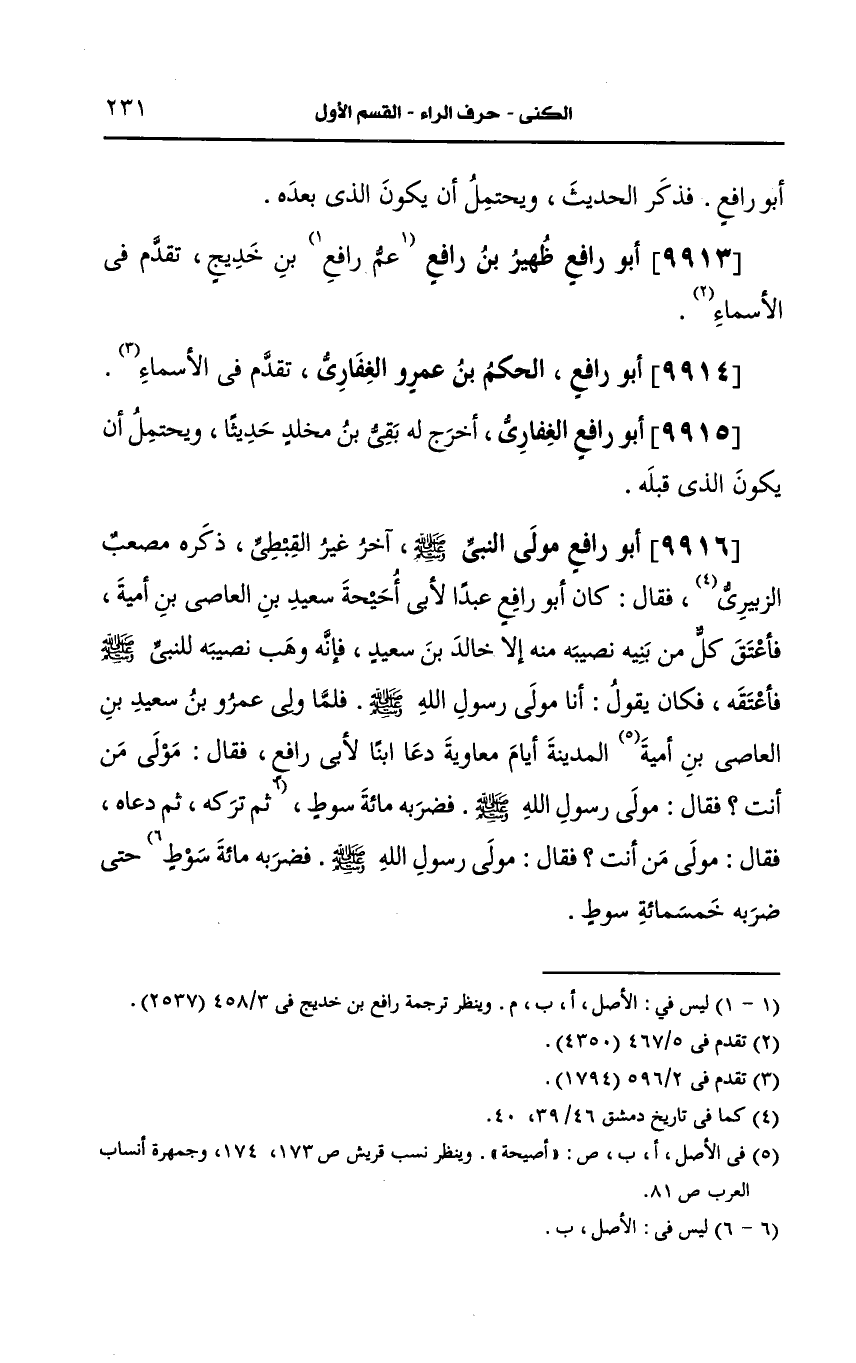 الكنى - حرف الراء - القسم الأول ٢٣١
أبو رافعٍ . فذكَر الحديثَ ، ويحتمِلُ أن يكونَ الذى بعدَه .
[٩٩١٣] أبو رافعٍ ظُهيرُ بنُ رافعٍ (١عمُّ رافعِ١) بنِ خَدِيجٍ ، تقدَّم فى
الأسماءِ(٢) .
[٩٩١٤] أبو رافعٍ ، الحكمُ بنُ عمرو الغِفَارِىُّ ، تقدَّم فى الأسماءِ(٣) .
[٩٩١٥] أبو رافعٍ الغِفارِىُّ ، أخرَج له بَقِىُّ بنُ مخلدٍ حَدِيثًا ، ويحتمِلُ أن
يكونَ الذى قبلَه .
[٩٩١٦] أبو رافعٍ مولَى النبىِّ ﷺ ، آخرُ غيرُ القِبْطِىِّ ، ذكَره مصعبٌ
الزبيرِىُّ(٤) ، فقال : كان أبو رافِعٍ عبدًا لأبى أُحَيْحةَ سعيدِ بنِ العاصى بنِ أميةَ ،
فأعْتَقَ كلٌّ من بَنِيه نصيبَه منه إلا خالدَ بنَ سعيدٍ ، فإنَّه وهَب نصيبَه للنبىِّ ﷺ
فأعْتَقَه ، فكان يقولُ : أنا مولَى رسولِ اللهِ ﷺ . فلمَّا ولِى عمرُو بنُ سعيدِ بنِ
العاصى بنِ أميةَ(٥) المدينةَ أيامَ معاويةَ دعَا ابنًا لأبى رافعٍ ، فقال : مَوْلَى مَن
أنت ؟ فقال : مولَى رسولِ اللهِ ﷺ . فضرَبه مائةَ سوطٍ ، (٦ثم ترَكه ، ثم دعاه ،
فقال : مولَى مَن أنت ؟ فقال : مولَى رسولِ اللهِ ﷺ . فضرَبه مائةَ سَوْطٍ٦) حتى
ضرَبه خَمسَمائةِ سوطٍ .
(١ - ١) ليس في : الأصل ، أ ، ب ، م . وينظر ترجمة رافع بن خديج فى ٤٥٨/٣ (٢٥٣٧) .
(٢) تقدم فى ٤٦٧/٥ (٤٣٥٠) .
(٣) تقدم فى ٥٩٦/٢ (١٧٩٤) .
(٤) كما فى تاريخ دمشق ٤٦/ ٣٩، ٤٠.
(٥) فى الأصل ، أ ، ب ، ص : «أصيحة» . وينظر نسب قريش ص ١٧٣، ١٧٤، وجمهرة أنساب
العرب ص ٨١.
(٦ - ٦) ليس فى : الأصل ، ب .